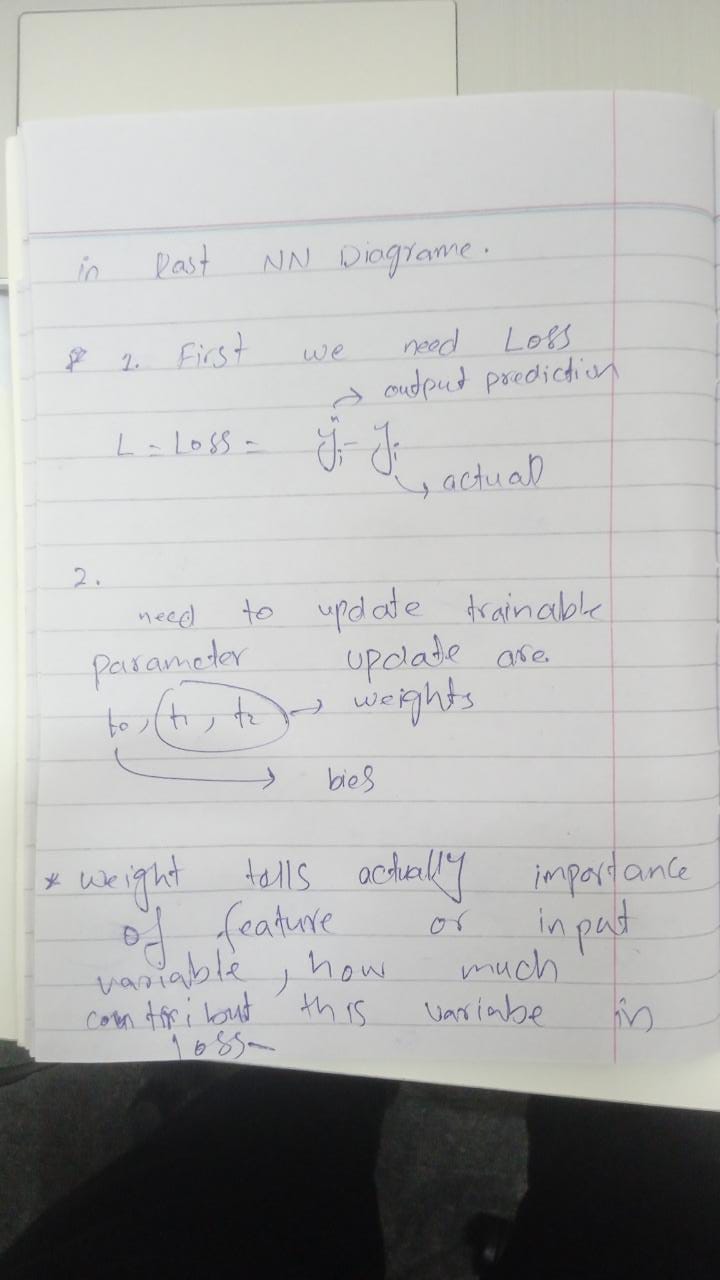 in Last NN Diagrame.
* 1. First we need Loss
→ output prediction
L = Loss = ŷi - yi
→ actual
2.
need to update trainable
parameter update are
to, t1, t2 → weights
→ bies
* weight talls actually importance
of feature or input
variable, how much
contribut this variabe in
loss